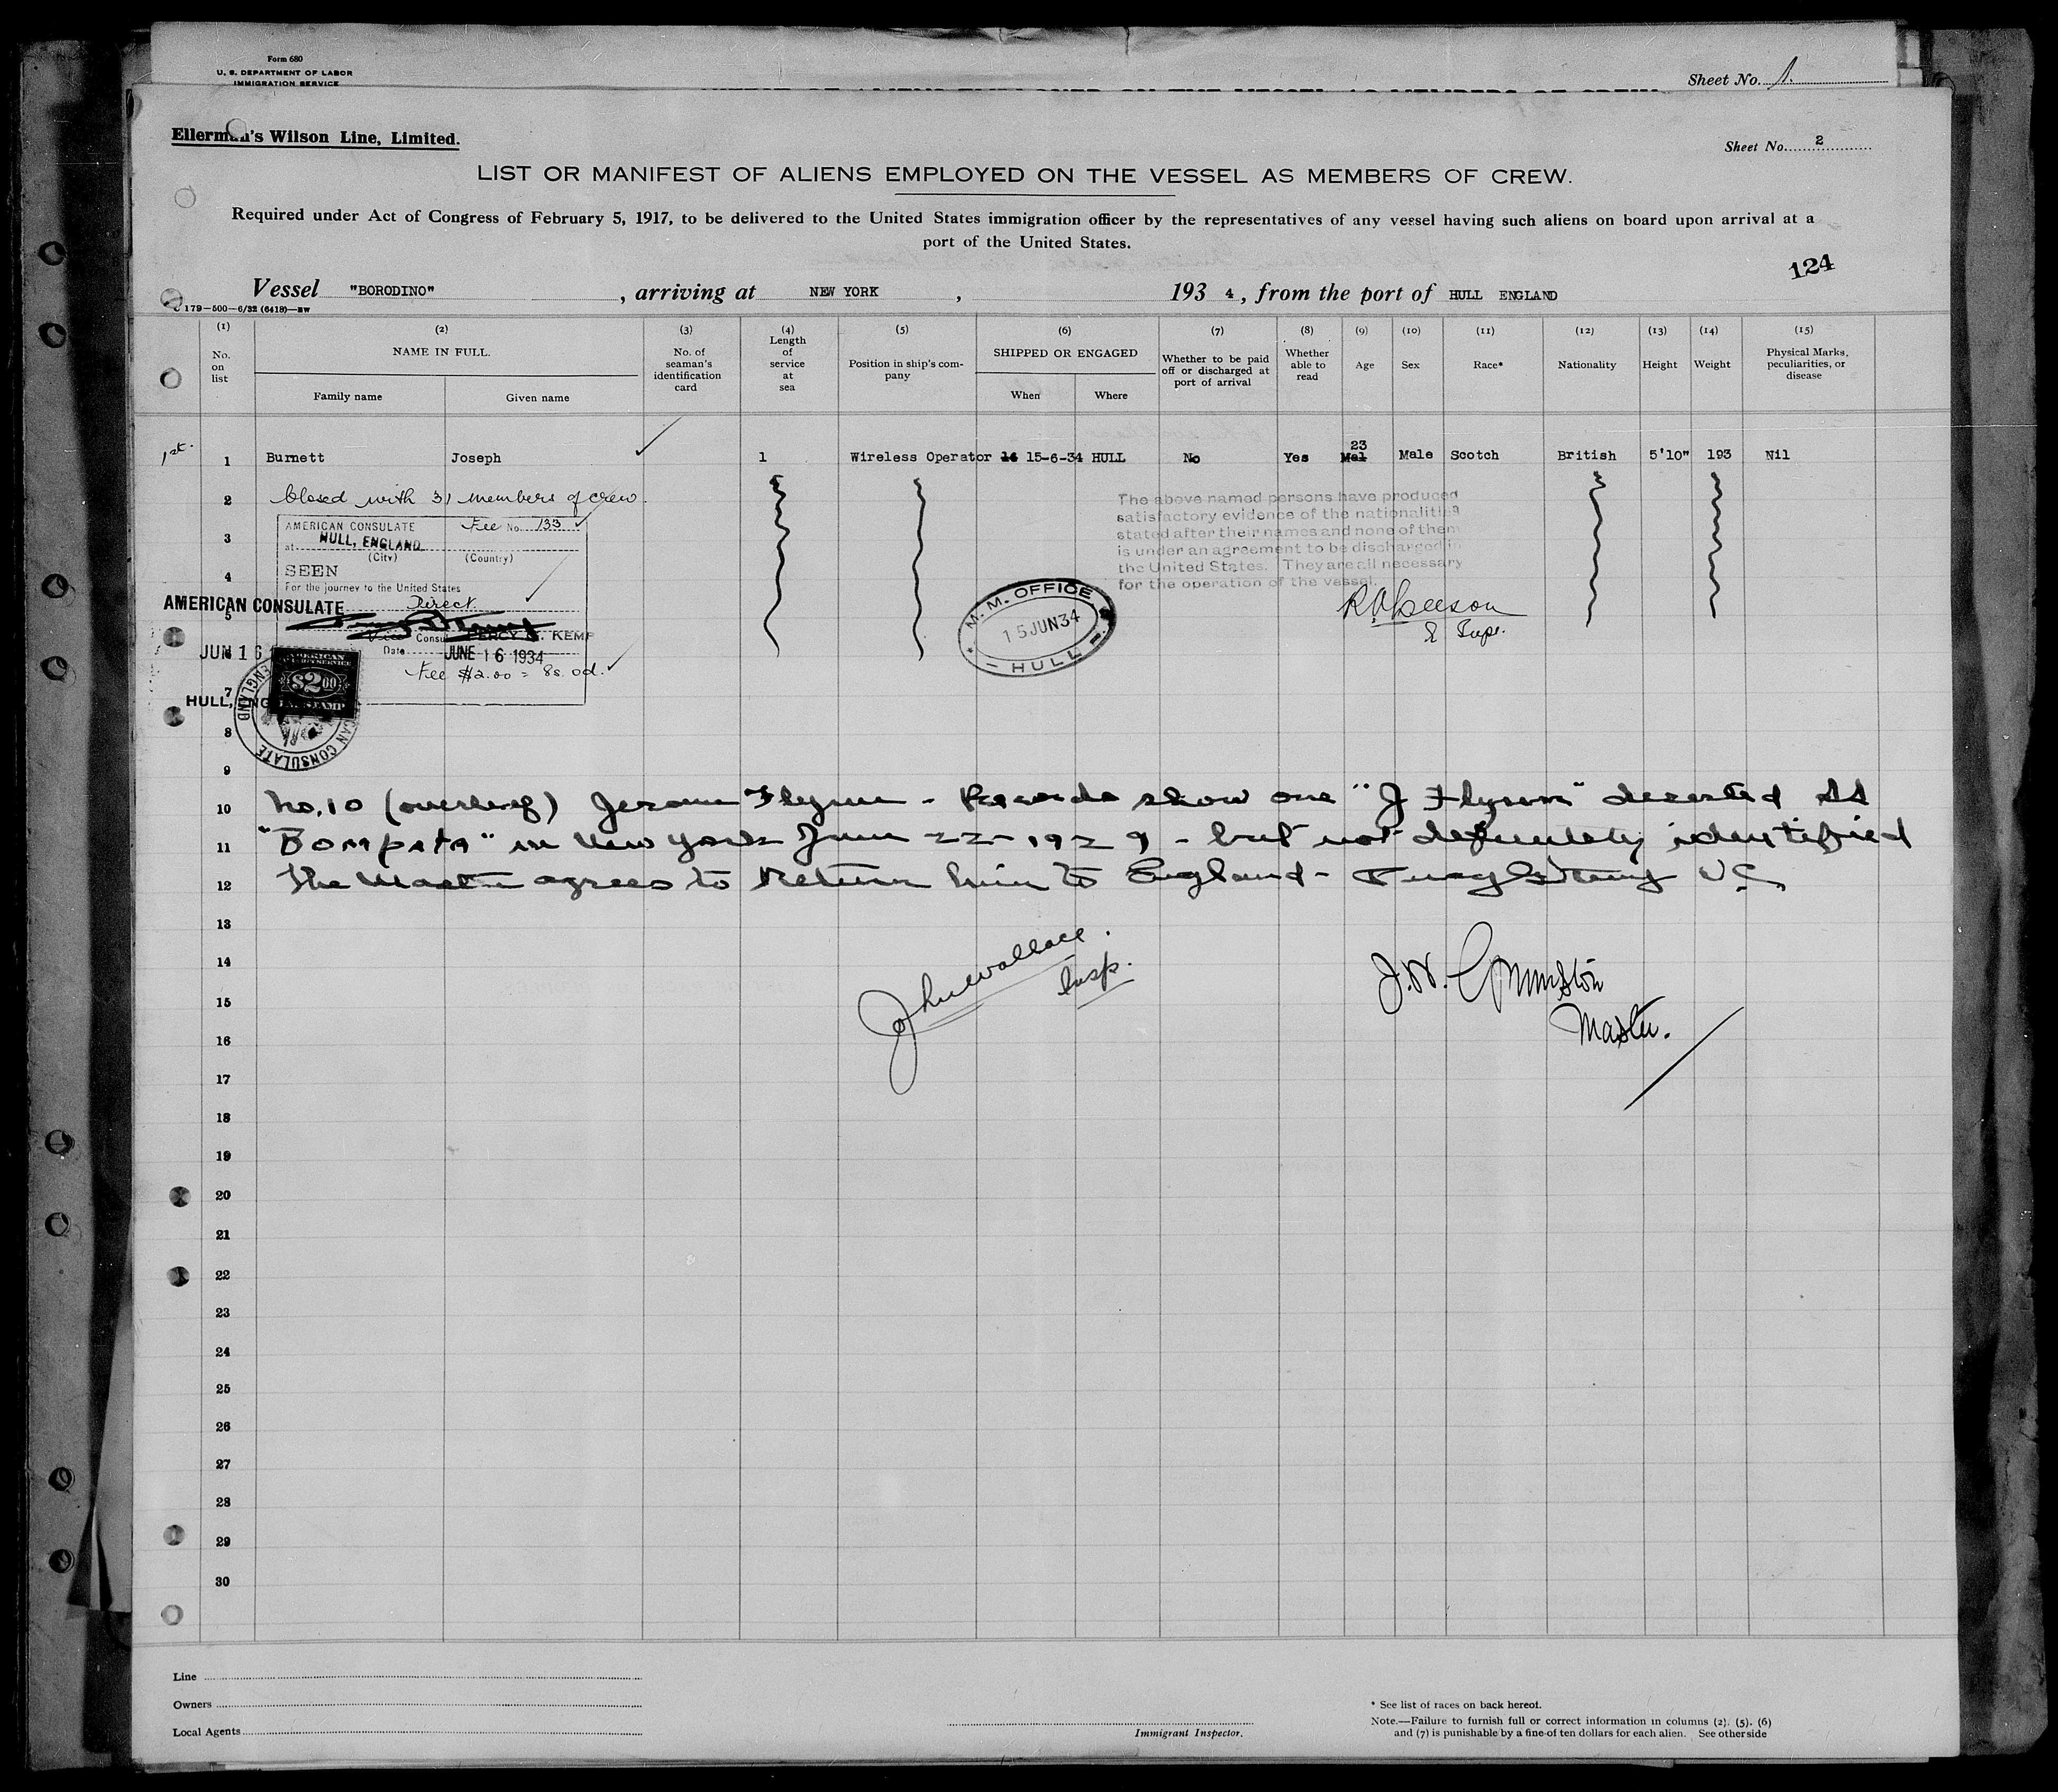 Form 680
U. S. DEPARTMENT OF LABOR
IMMIGRATION SERVICE
Sheet No. 1.
Ellerman's Wilson Line, Limited.
Sheet No. 2
LIST OR MANIFEST OF ALIENS EMPLOYED ON THE VESSEL AS MEMBERS OF CREW.
Required under Act of Congress of February 5, 1917, to be delivered to the United States immigration officer by the representatives of any vessel having such aliens on board upon arrival at a
port of the United States.
124
Vessel "BORODINO", arriving at NEW YORK, 193 4, from the port of HULL ENGLAND
179-500-6/32 (6418)-BW
(1) (2) (3) (4) (5) (6) (7) (8) (9) (10) (11) (12) (13) (14) (15)
No. on list
NAME IN FULL.
Family name
Given name
No. of seaman's identification card
Length of service at sea
Position in ship's company
SHIPPED OR ENGAGED
When
Where
Whether to be paid off or discharged at port of arrival
Whether able to read
Age
Sex
Race*
Nationality
Height
Weight
Physical Marks, peculiarities, or disease
1st. 1 Burnett Joseph 1 Wireless Operator 16 15-6-34 HULL No Yes 23 Mal Male Scotch British 5'10" 193 Nil
2 Closed with 31 members of crew.
AMERICAN CONSULATE Fee No. 133
at HULL, ENGLAND
(City) (Country)
SEEN
For the journey to the United States
Direct
Vice Consul PERCY G. KEMP
Date JUNE 16 1934
Fee $2.00 = 8s. 0d.
AMERICAN CONSULATE
JUN 16
HULL, ENG
AMERICAN
$2.00
STAMP
AMERICAN CONSULATE
ENGLAND
The above named persons have produced
satisfactory evidence of the nationalities
stated after their names and none of them
is under an agreement to be discharged in
the United States. They are all necessary
for the operation of the vessel.
M. M. OFFICE
15 JUN 34
HULL
Supt.
3
4
5
6
7
8
9
10 No. 10 (overleaf) Jerome Flynn - Records show one "J Flynn" deserted SS
11 "Bompata" in New York June 22-1929 - but not definitely identified
12 The Master agrees to return him to England - V.C.
13
14 John Wallace.
Insp.
J.W. Grimston
Master.
15
16
17
18
19
20
21
22
23
24
25
26
27
28
29
30
Line
Owners
Local Agents
Immigrant Inspector.
* See list of races on back hereof.
Note.—Failure to furnish full or correct information in columns (2), (5), (6)
and (7) is punishable by a fine of ten dollars for each alien. See other side